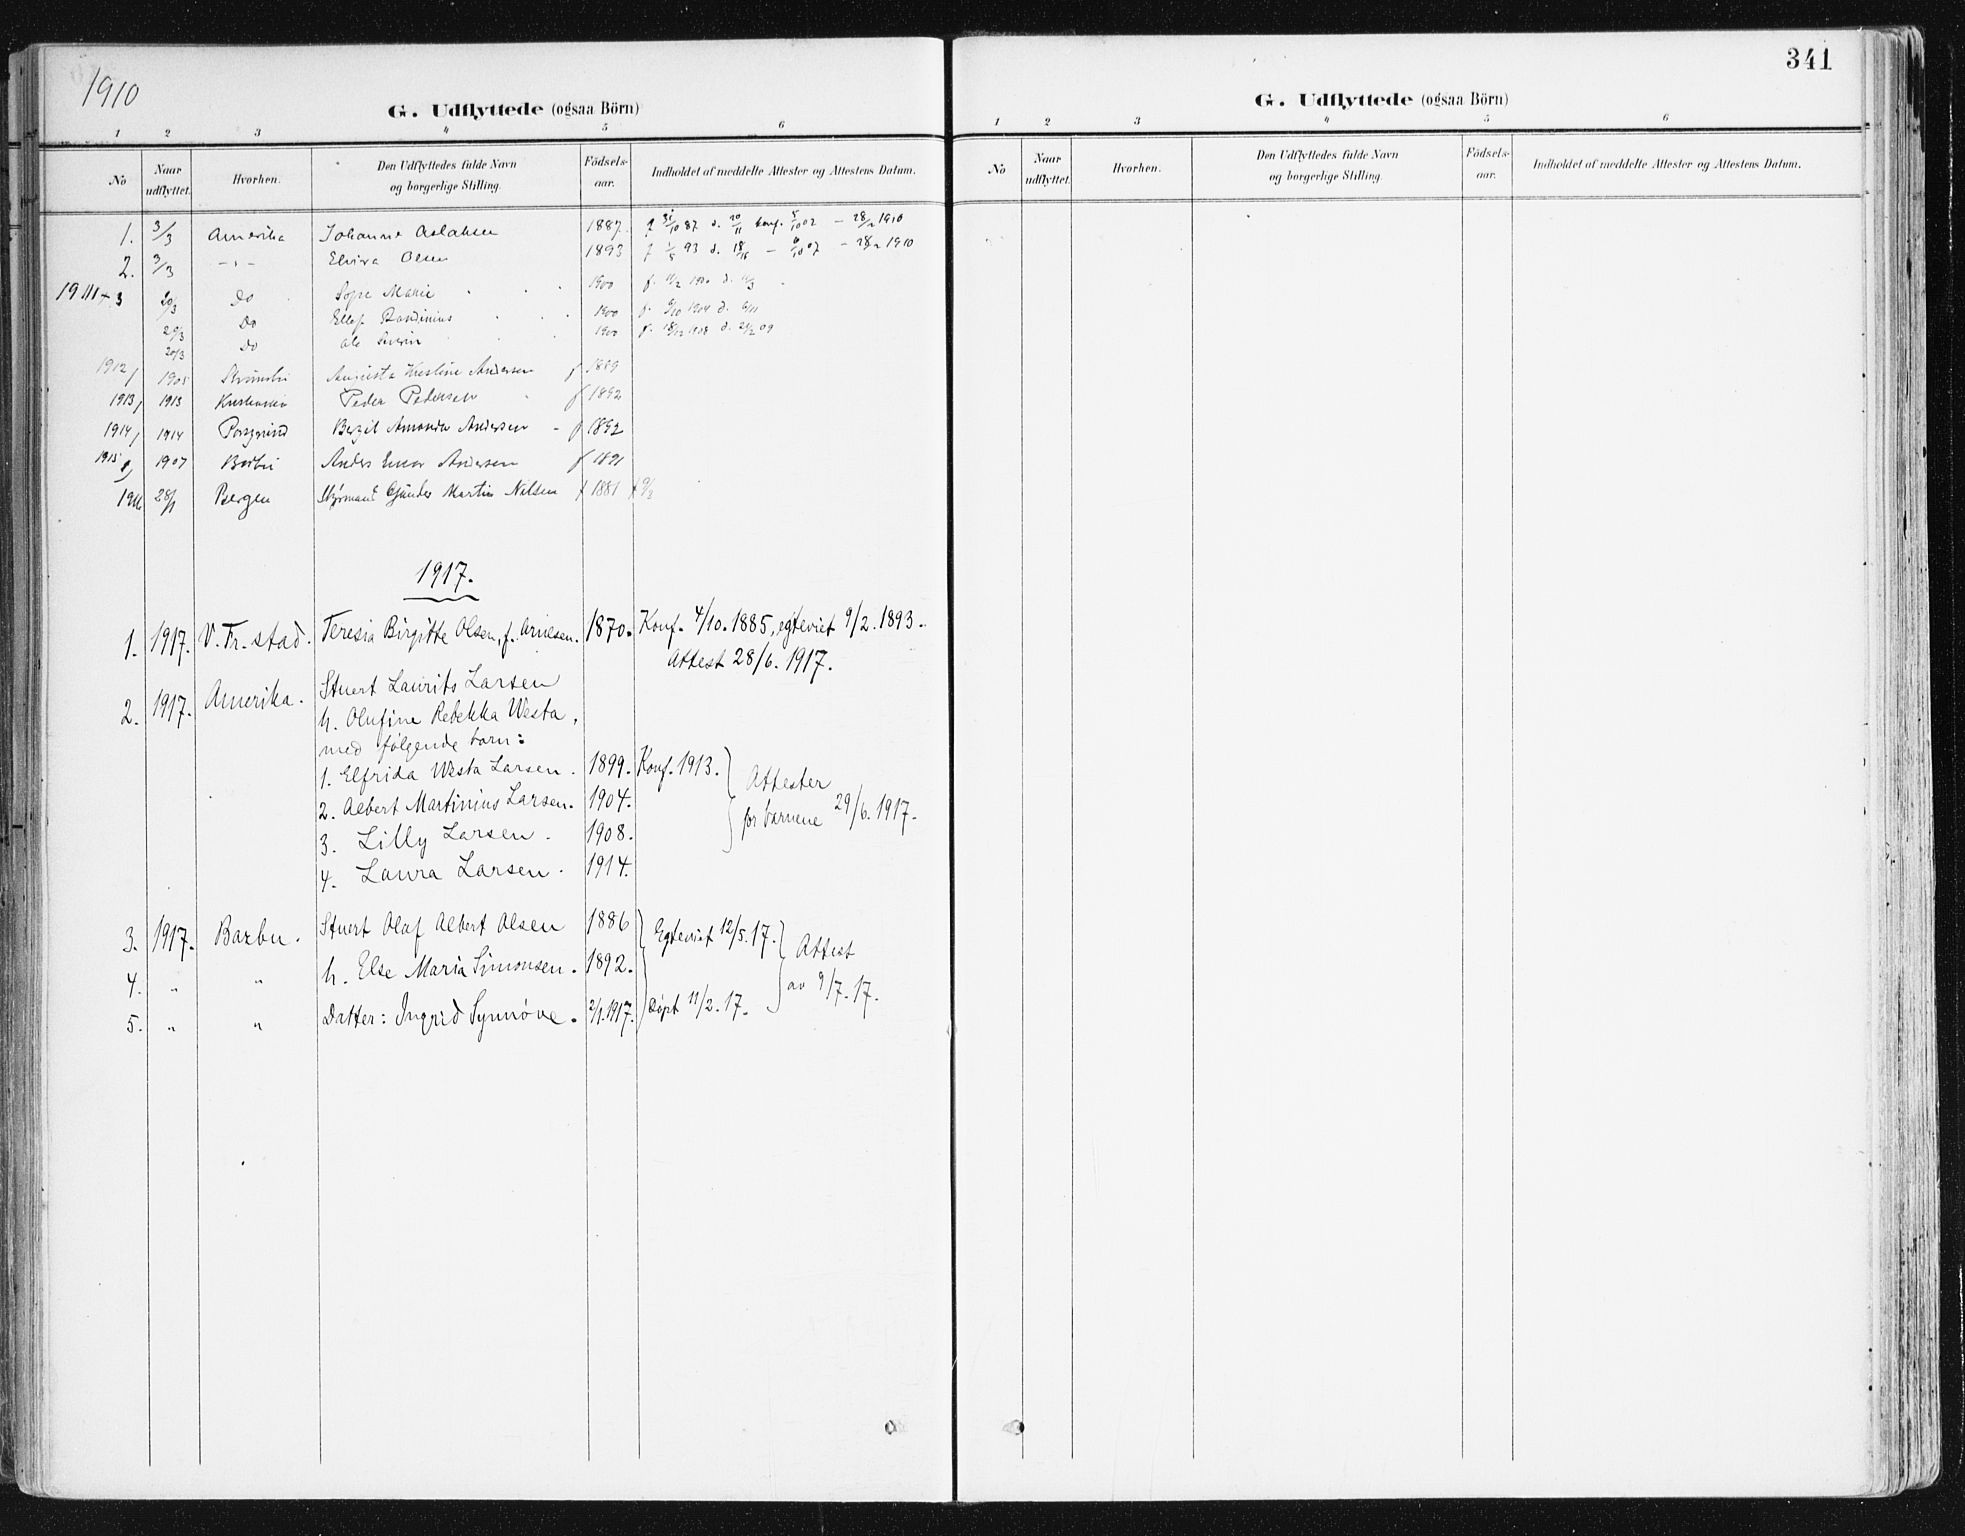 1910
G. Udflyttede (ogsaa Börn)
1 2 3 4 5 6
No Naar udflyttet. Hvorhen. Den Udflyttedes fulde Navn og borgerlige Stilling. Födsels-aar. Indholdet af meddelte Attester og Attestens Datum.
1. 3/3 Amerika Johanne Aslaksen 1887. f 31/10 87 d. 20/11 konf. 5/10 02 – 28/2 1910
2. 3/3 – " – Elvira Olsen 1893 – 28/2 1910
1911 3 20/3 do Marie 1900
20/3 Do 1900
20/3 do Ole 1900
1912, 1905 Augusta Kristine Andersen f 1889
1913, 1913 Kristiania Peder Pedersen f 1892
1914, 1914 Porsgrund Bergit Amanda Andersen – f 1892
1915 1907 Barbu Anders Einar Andersen f 1891
28/1 Bergen Styrmand Gunder Martin Nilsen f 1881 f 9/3
1917.
1. 1917. V. Fr. stad. Teresia Birgitte Olsen, f. Arnesen. 1870. Konf. 4/10. 1885, egteviet 9/2. 1893.
Attest 28/6. 1917.
2. 1917. Amerika. Stuert Laurits Larsen
h. Olufine Rebekka Westa,
med følgende barn:
1. Elfrida Westa Larsen. 1899. Konf. 1913. Attester
2. Albert Martinius Larsen. 1904. for barnene 29/6. 1917.
3. Lilly Larsen. 1908.
4. Laura Larsen. 1914.
3. 1917. Barbu. Stuert Olaf Albert Olsen 1886 Egteviet 12/5. 17. Attest
4. " " h. Else Maria Simonsen. 1892. av 9/7. 17.
5. " " Datter: Ingrid Synnøve. 2/1. 1917. Døpt 11/2. 17.
341
G. Udflyttede (ogsaa Börn)
1 2 3 4 5 6
No Naar udflyttet. Hvorhen. Den Udflyttedes fulde Navn og borgerlige Stilling. Födsels-aar. Indholdet af meddelte Attester og Attestens Datum.